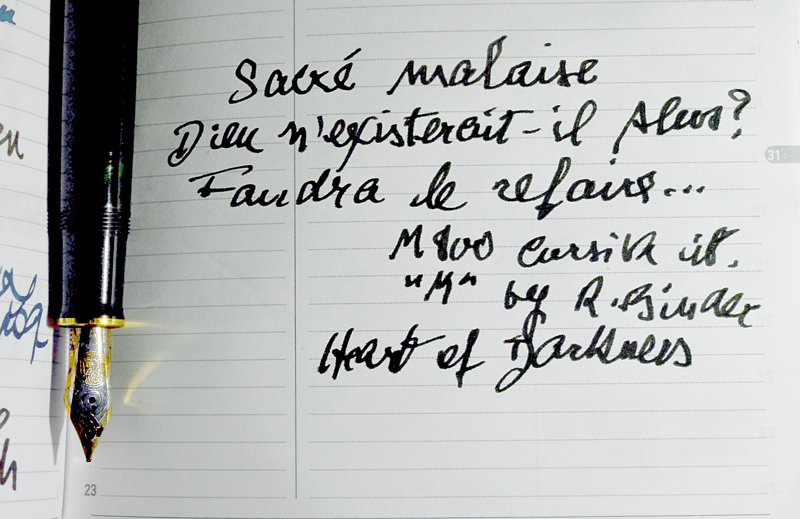 Sacré malaise
Dieu n'existerait-il plus?
Faudra le refaire...
M800 cursiv it.
"M" by R. Binder
Heart of Darkness
31
23